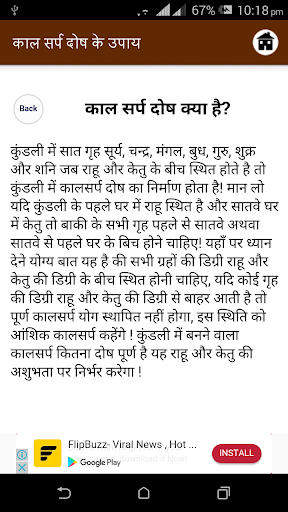 67% 10:18 pm
काल सर्प दोष के उपाय
Back
काल सर्प दोष क्या है?
कुंडली में सात गृह सूर्य, चन्द्र, मंगल, बुध, गुरु, शुक्र
और शनि जब राहू और केतु के बीच स्थित होते है तो
कुंडली में कालसर्प दोष का निर्माण होता है! मान लो
यदि कुंडली के पहले घर में राहू स्थित है और सातवे घर
में केतु तो बाकी के सभी गृह पहले से सातवे अथवा
सातवे से पहले घर के बिच होने चाहिए! यहाँ पर ध्यान
देने योग्य बात यह है की सभी ग्रहों की डिग्री राहू और
केतु की डिग्री के बीच स्थित होनी चाहिए, यदि कोई गृह
की डिग्री राहू और केतु की डिग्री से बाहर आती है तो
पूर्ण कालसर्प योग स्थापित नहीं होगा, इस स्थिति को
आंशिक कालसर्प कहेंगे ! कुंडली में बनने वाला
कालसर्प कितना दोष पूर्ण है यह राहू और केतु की
अशुभता पर निर्भर करेगा !
FlipBuzz- Viral News , Hot ...
Google Play
INSTALL